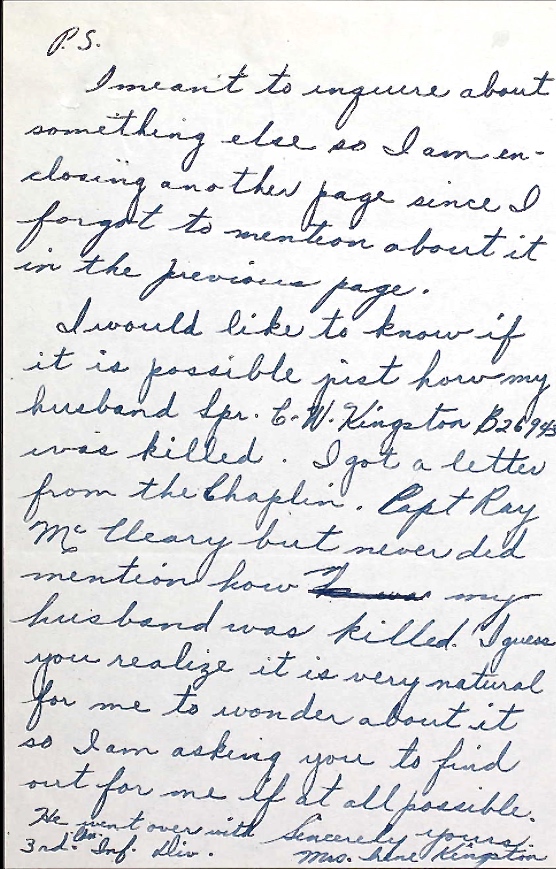 P.S.
I meant to inquire about
something else so I am en-
closing another page since I
forgot to mention about it
in the previous page.
I would like to know if
it is possible just how my
husband Spr. C. W. Kingston B26943
was killed. I got a letter
from the Chaplin. Capt Ray
Mc Cleary but never did
mention how my
husband was killed. I guess
you realize it is very natural
for me to wonder about it
so I am asking you to find
out for me if at all possible.
He went over with Sincerely yours.
3rd. Can. Inf. Div. Mrs. Irene Kingston